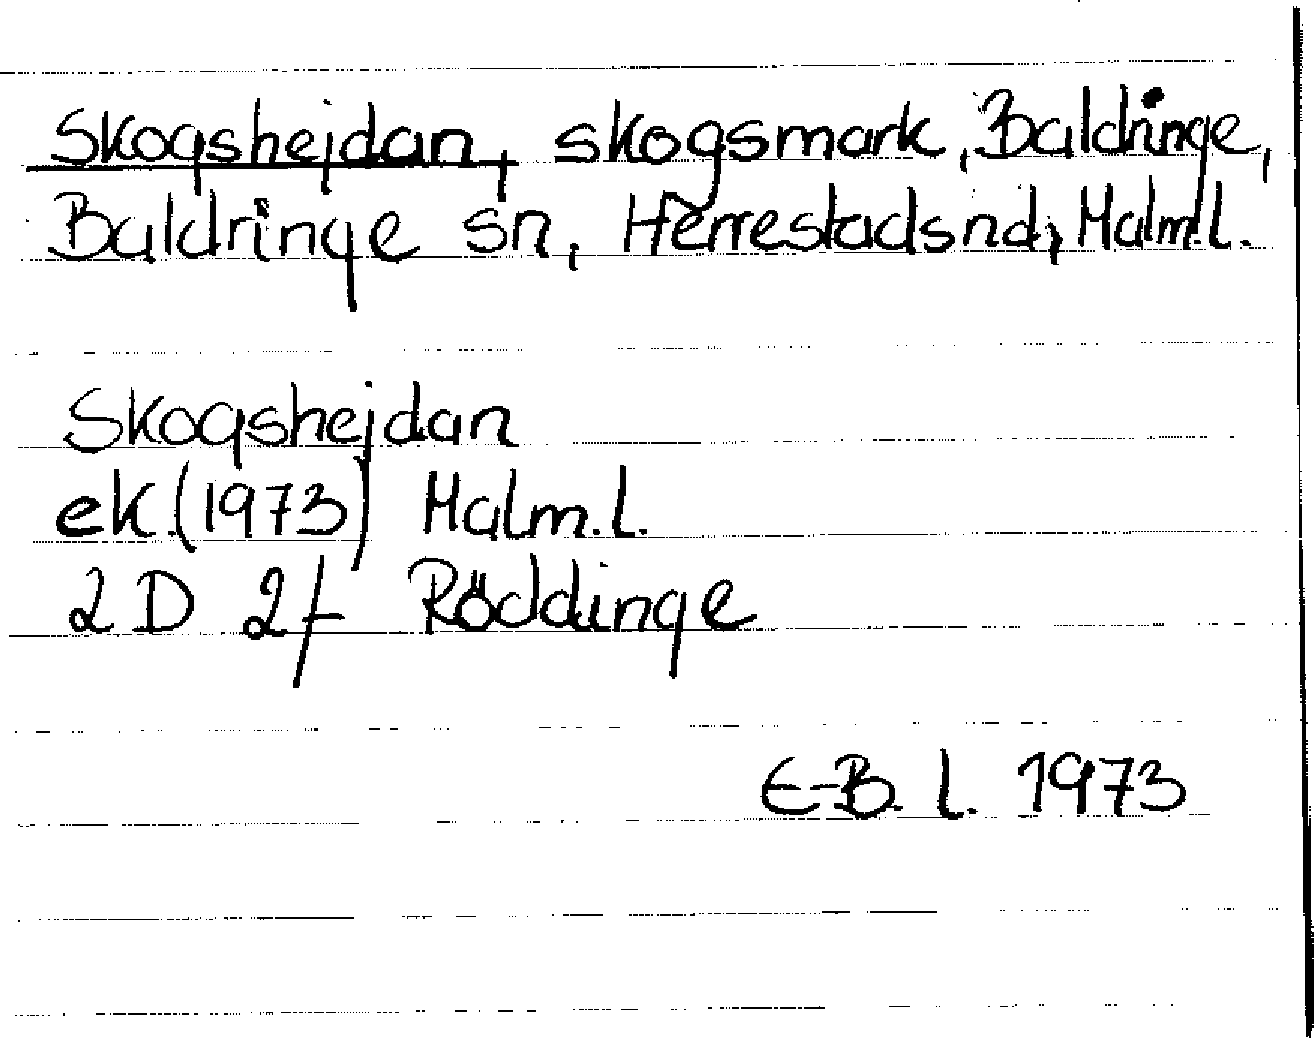 Skogshejdan, skogsmark, Baldringe,
Baldringe sn, Herrestadsnd, Malm.l.
Skogshejdan
ek. (1973) Malm.l.
2D 2f Röddinge
E-B. L. 1973